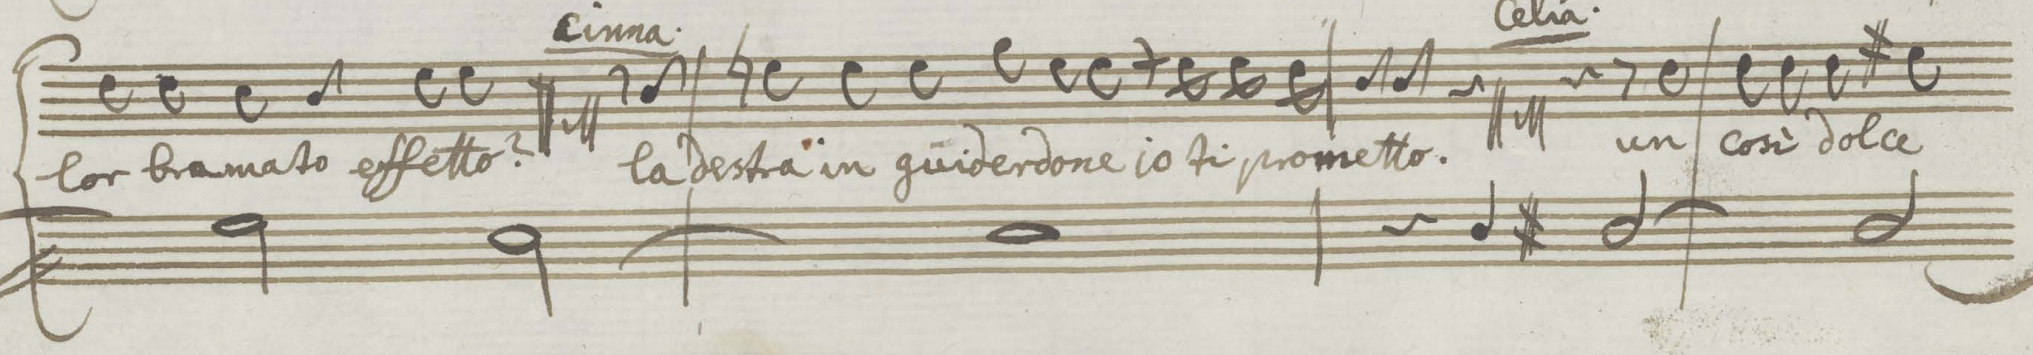 Cinna. Celia.
lor bramato effetto? la destra in guiderdone io ti prometto. un così dolce